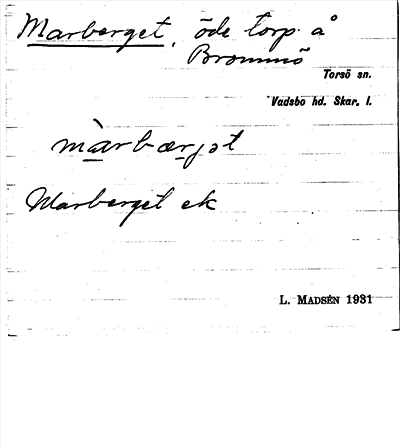 Marberget, öde torp å
Brommö
Torsö sn.
Vadsbo hd. Skar. l.
màrbærjət
Marberget ek
L. MADSÉN 1931